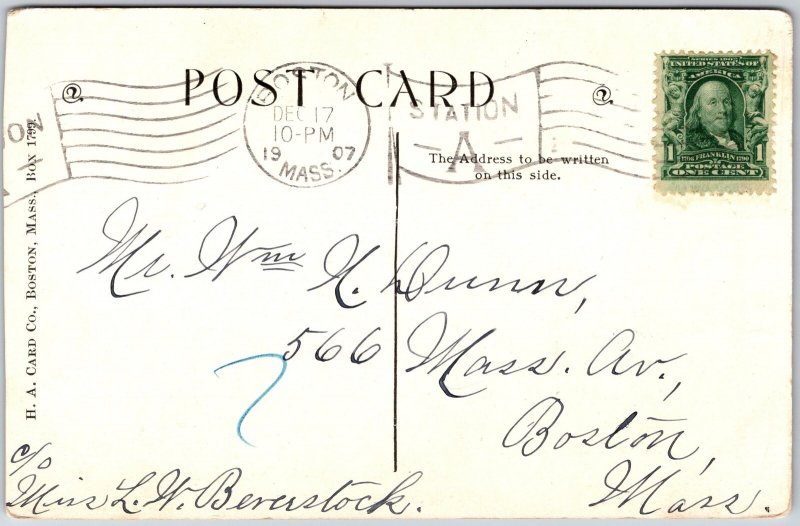 POST CARD
BOSTON
DEC 17
10-PM
19 07
MASS.
STATION
A
SERIES 1902
UNITED STATES OF
AMERICA
1 1706 FRANKLIN 1790 1
POSTAGE
ONE CENT
The Address to be written
on this side.
H. A. CARD CO., BOSTON, MASS., BOX 1799
Mr. Wm H. Dunn,
566 Mass. Av.,
Boston,
Mass.
7
c/o
Miss L. W. Beverstock.